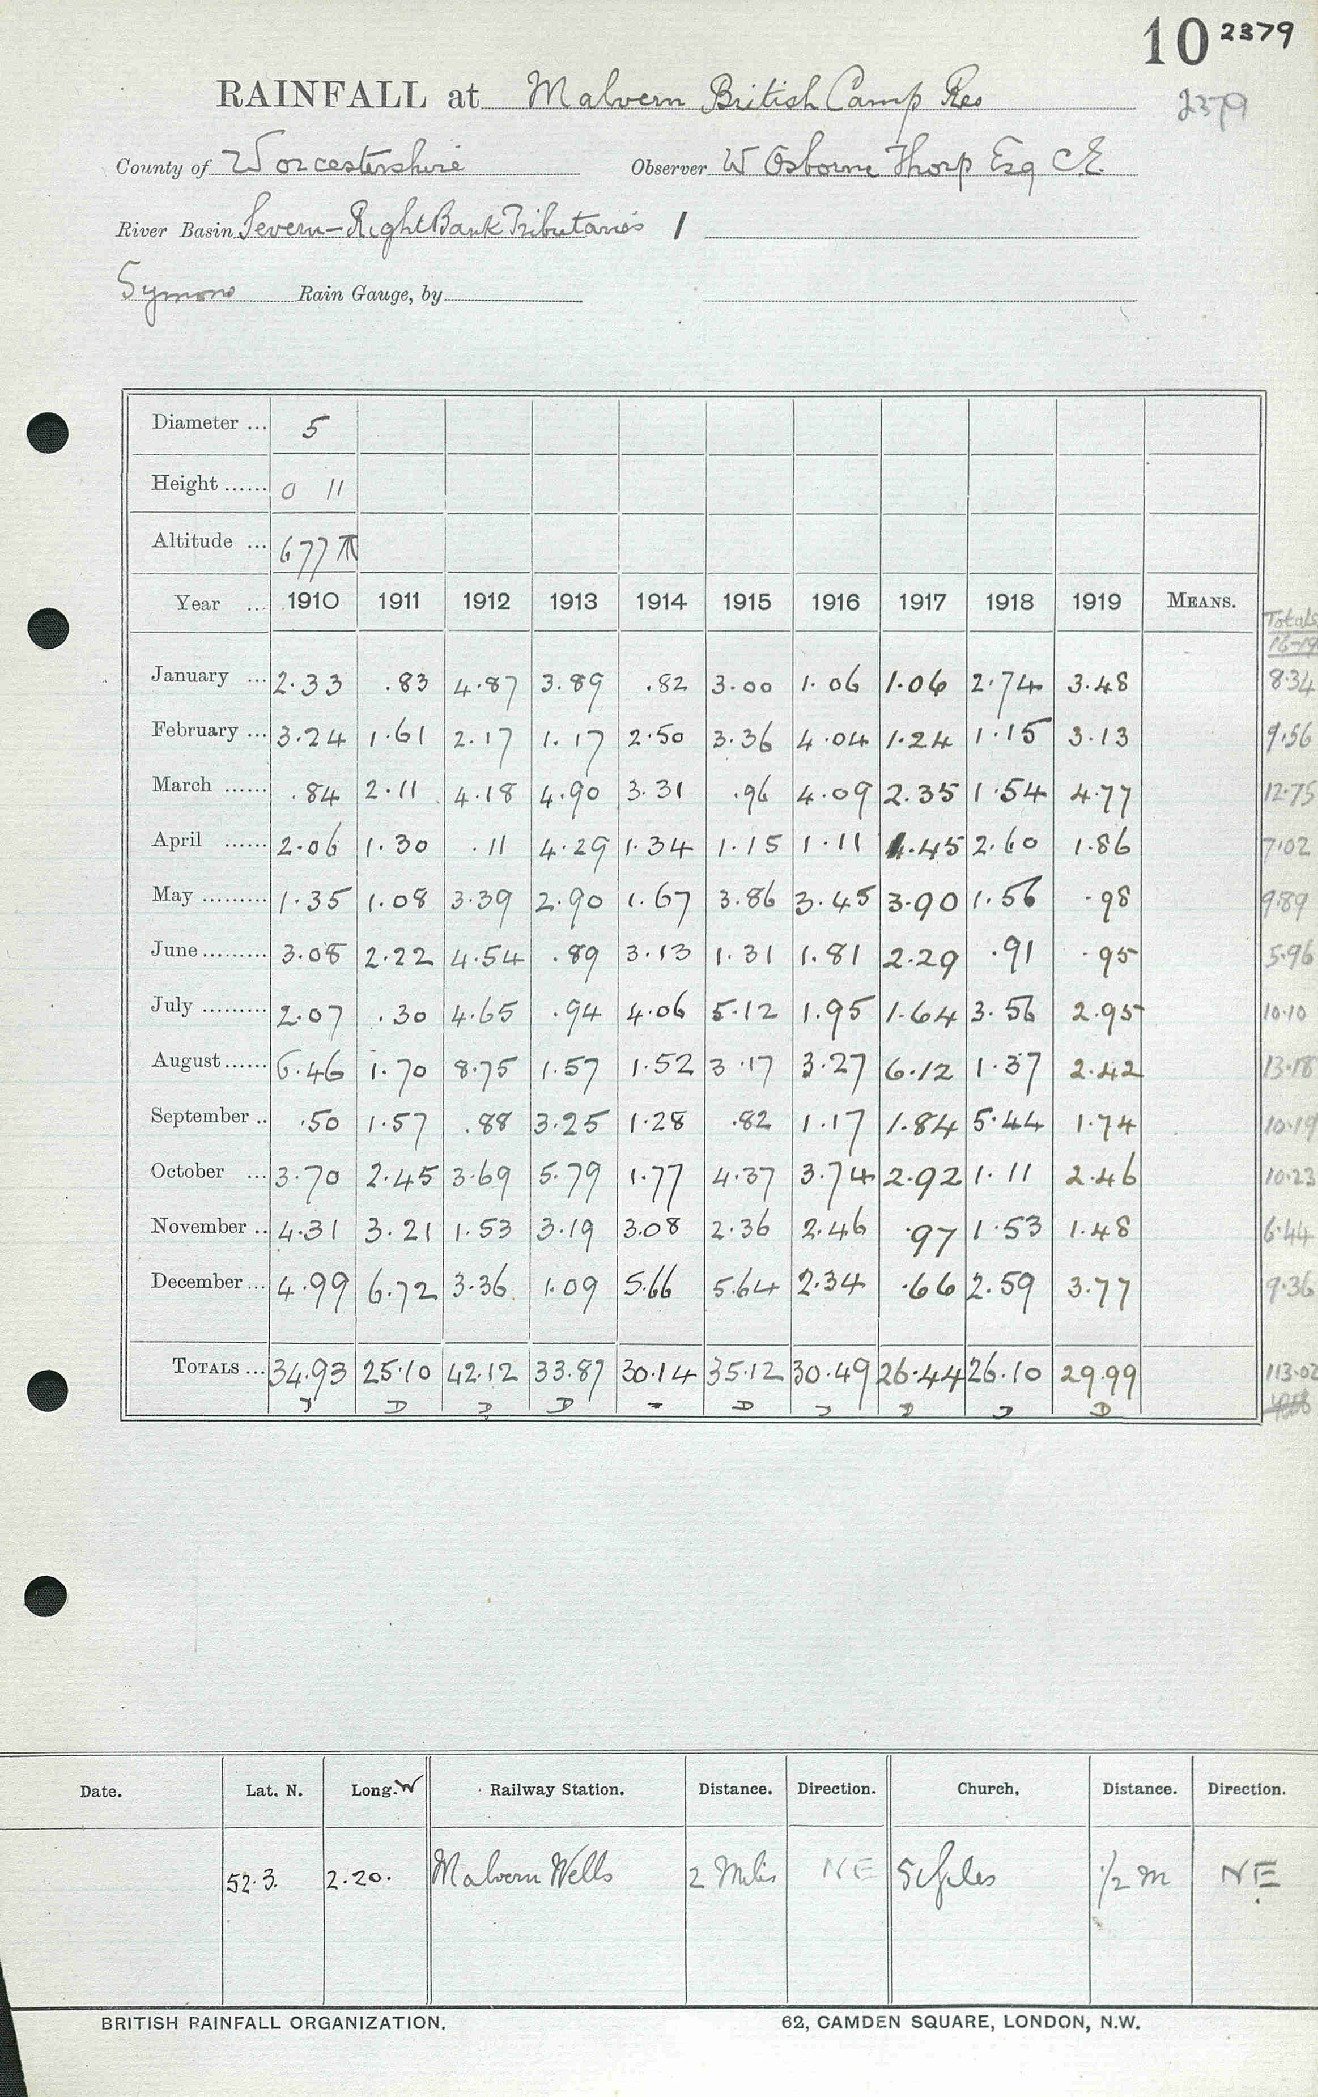 10 2379
RAINFALL at Malvern British Camp Res 2379
County of Worcestershire Observer W Osborne Thorp Esq C.E.
River Basin Severn-Right Bank Tributaries 1
Symons Rain Gauge, by
Diameter ... 5
Height ...... 0 11
Altitude ... 677
Year ... 1910 1911 1912 1913 1914 1915 1916 1917 1918 1919 MEANS. Totals
16-19
January ... 2.33 .83 4.87 3.89 .82 3.00 1.06 1.06 2.74 3.48 8.34
February ... 3.24 1.61 2.17 1.17 2.50 3.36 4.04 1.24 1.15 3.13 9.56
March ...... .84 2.11 4.18 4.90 3.31 .96 4.09 2.35 1.54 4.77 12.75
April ...... 2.06 1.30 .11 4.29 1.34 1.15 1.11 1.45 2.60 1.86 7.02
May ......... 1.35 1.08 3.39 2.90 1.67 3.86 3.45 3.90 1.56 .98 9.89
June ......... 3.08 2.22 4.54 .89 3.13 1.31 1.81 2.29 .91 .95 5.96
July ......... 2.07 .30 4.65 .94 4.06 5.12 1.95 1.64 3.56 2.95 10.10
August ...... 6.46 1.70 8.75 1.57 1.52 3.17 3.27 6.12 1.37 2.42 13.18
September .. .50 1.57 .88 3.25 1.28 .82 1.17 1.84 5.44 1.74 10.19
October ... 3.70 2.45 3.69 5.79 1.77 4.37 3.74 2.92 1.11 2.46 10.23
November .. 4.31 3.21 1.53 3.19 3.08 2.36 2.46 .97 1.53 1.48 6.44
December ... 4.99 6.72 3.36 1.09 5.66 5.64 2.34 .66 2.59 3.77 9.36
TOTALS ... 34.93 25.10 42.12 33.87 30.14 35.12 30.49 26.44 26.10 29.99 113.02
Date. Lat. N. Long. W Railway Station. Distance. Direction. Church. Distance. Direction.
52.3. 2.20. Malvern Wells 2 Miles NE S Giles 1/2 m NE
BRITISH RAINFALL ORGANIZATION. 62, CAMDEN SQUARE, LONDON, N.W.